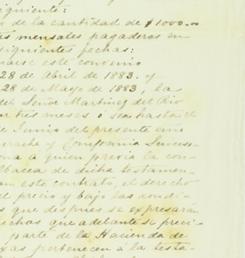 siguiente:
de la cantidad de $1000.00
mensales pagaderos en
siguientes fechas:
este convenio
28 de Abril de 1883. y
28 de Mayo de 1883, la
del Señor Martinez del Rio
tres meses o sea hasta el
de Junio del presente
y Compañia
a quien previa la con-
de dicha testamen-
en este contrato, el derecho
el precio y bajo las condi-
que despues se expresaran
que adelante se preci-
parte de la Hacienda de
pertenecen á la testa-